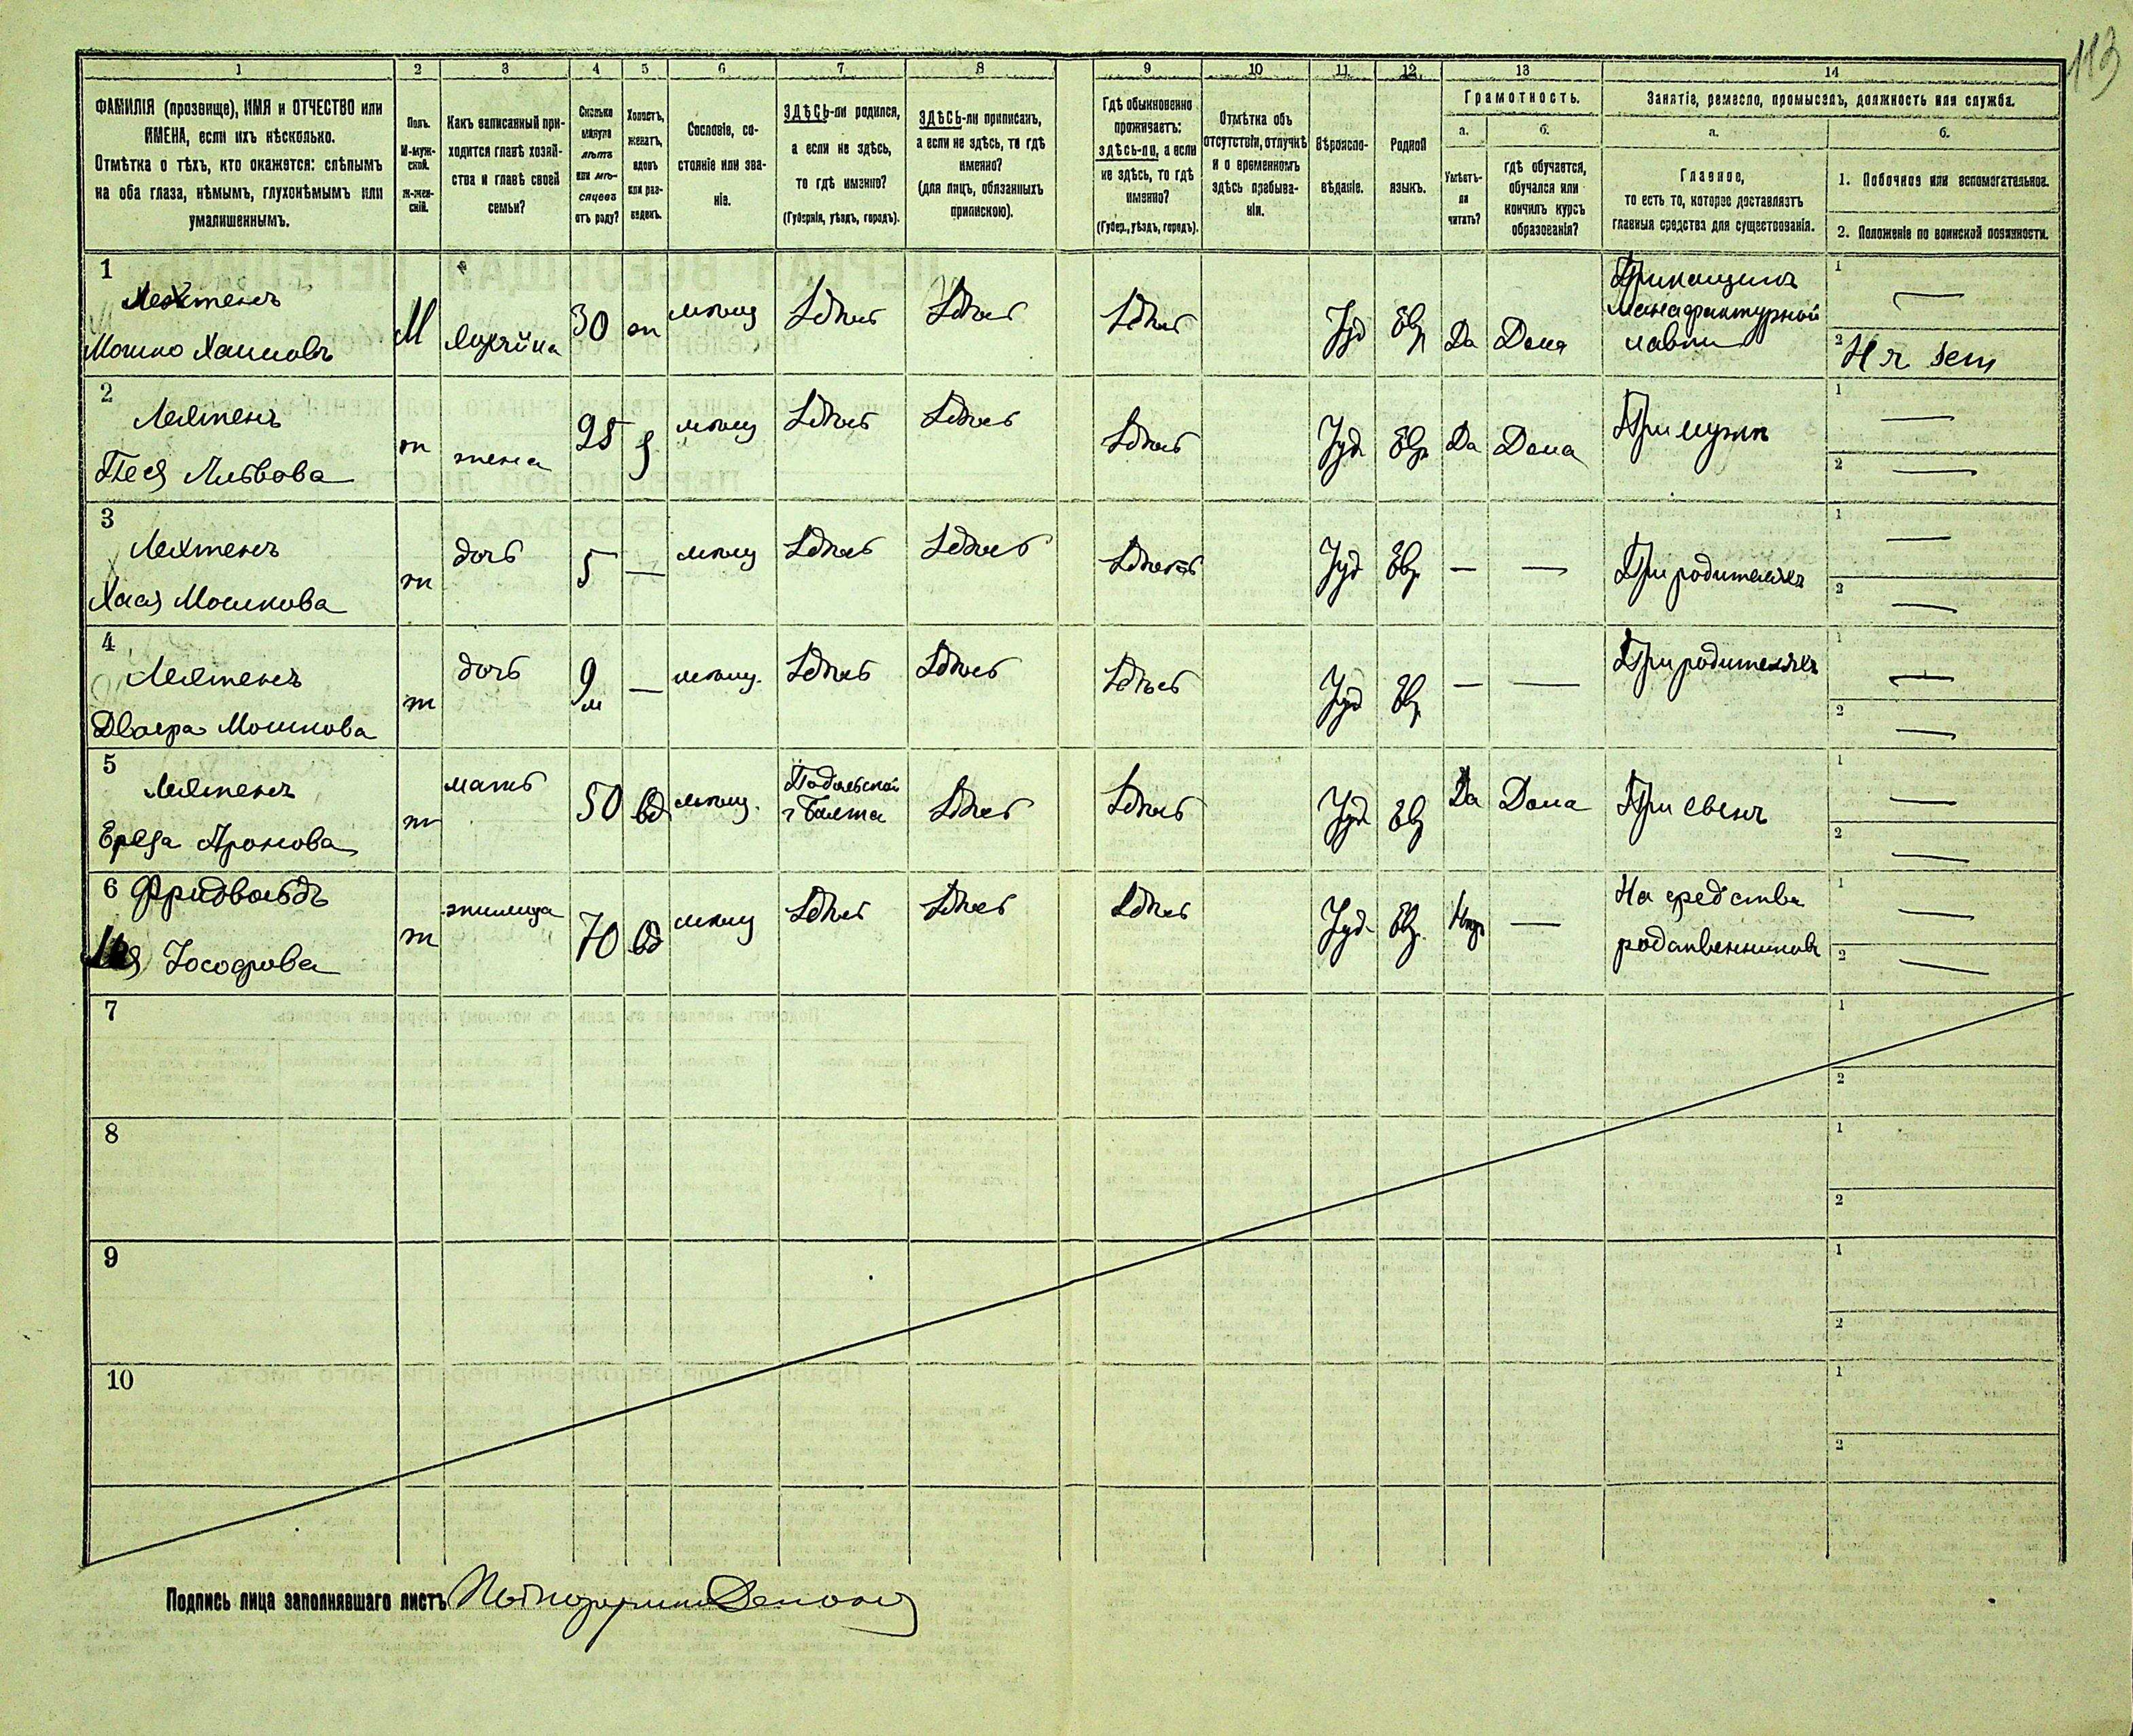 113
1 2 3 4 5 6 7 8 9 10 11 12 13 14
ФАМИЛІЯ (прозвище), ИМЯ и ОТЧЕСТВО или
ИМЕНА, если ихъ нѣсколько.
Отмѣтка о тѣхъ, кто окажется: слѣпымъ
на оба глаза, нѣмымъ, глухонѣмымъ или
умалишеннымъ.
Полъ.
М-муж-
ской.
Ж-жен-
скій.
Какъ записанный при-
ходится главѣ хозяй-
ства и главѣ своей
семьи?
Сколько
минуло
лѣтъ
или мѣ-
сяцевъ
отъ роду?
Холостъ,
женатъ,
вдовъ
или раз-
веденъ.
Сословіе, со-
стояніе или зва-
ніе.
ЗДѢСЬ-ли родился,
а если не здѣсь,
то гдѣ именно?
(Губернія, уѣздъ, городъ).
ЗДѢСЬ-ли приписанъ,
а если не здѣсь, то гдѣ
именно?
(для лицъ, обязанныхъ
припискою).
Гдѣ обыкновенно
проживаетъ:
здѣсь-ли, а если
не здѣсь, то гдѣ
именно?
(Губер., уѣздъ, городъ).
Отмѣтка объ
отсутствіи, отлучкѣ
и о временномъ
здѣсь пребыва-
ніи.
Вѣроиспо-
вѣданіе.
Родной
языкъ.
Грамотность.
а.
Умѣетъ-
ли
читать?
б.
гдѣ обучается,
обучался или
кончилъ курсъ
образованія?
Занятіе, ремесло, промыселъ, должность или служба.
а.
Главное,
то есть то, которое доставляетъ
главныя средства для существованія.
б.
1. Побочное или вспомогательное.
2. Положеніе по воинской повинности.
1
Лехтенъ
Мошко Хаимовъ
М хозяинъ 30 ж мѣщ Здѣсь Здѣсь Здѣсь Іуд Евр Да Дома
Прикащикъ
Манафактурной
лавки
1 —
2
2
Лехтенъ
Песя Лейвова
ж жена 25 з мѣщ Здѣсь Здѣсь Здѣсь Іуд Евр Да Дома При мужѣ
1 —
2 —
3
Лехтенъ
Хая Мошкова
ж дочь 5 — мѣщ Здѣсь Здѣсь Здѣсь Іуд Евр — — При родителяхъ
1 —
2 —
4
Лехтенъ
Двойра Мошкова
ж дочь 9 м — мѣщ. Здѣсь Здѣсь Здѣсь Іуд Евр — — При родителяхъ
1 —
2 —
5
Лехтенъ
Аронова
ж мать 50 вд мѣщ.
Подольской
г Балта
Здѣсь Здѣсь Іуд Евр Да Дома При сынѣ
1 —
2 —
6 Фридвальдъ
Іосифова
ж жилица 70 вд мѣщ Здѣсь Здѣсь Здѣсь Іуд. Евр. —
На средства
родственниковъ
1 —
2 —
7
1
2
8
1
2
9
1
2
10
1
2
Подпись лица заполнявшаго листъ